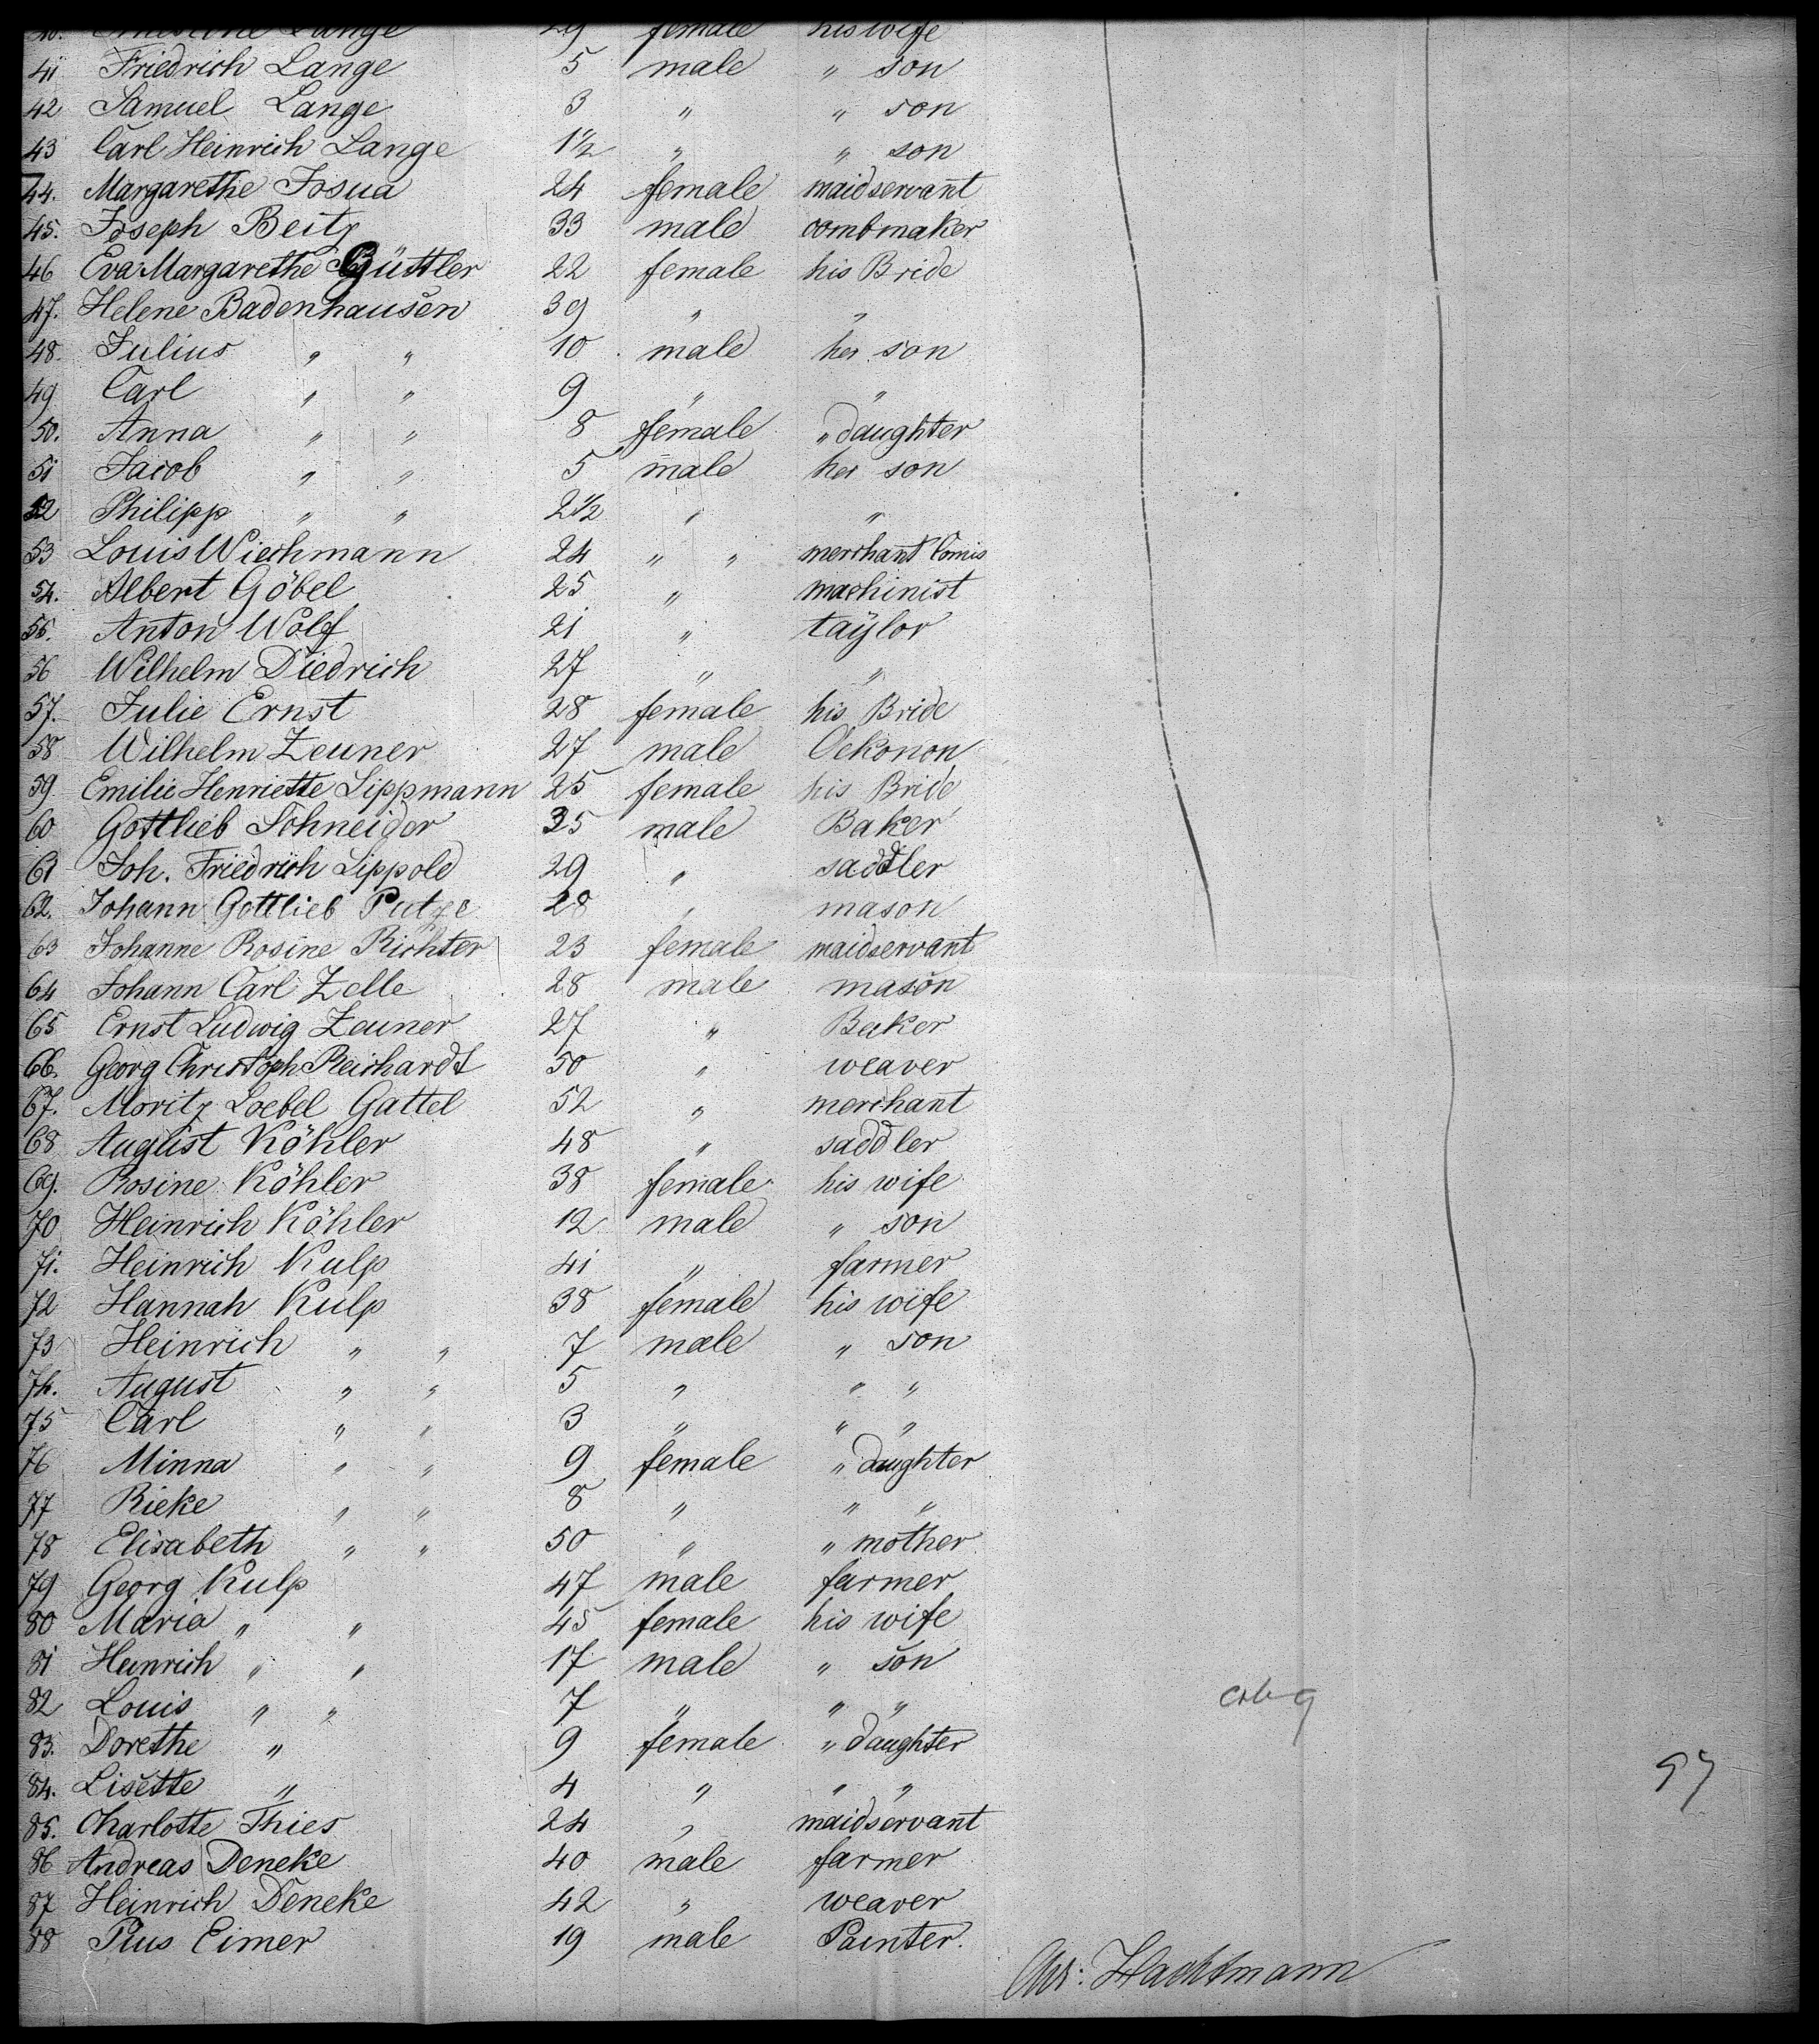 40. Ernestine Lange 29 female his wife
41 Friedrich Lange 5 male " son
42 Samuel Lange 3 " " son
43 Carl Heinrich Lange 1 1/2 " " son
44. Margarethe Josua 24 female maidservant
45. Joseph Beitz 33 male combmaker
46 Eva Margarethe Güttler 22 female his Bride
47. Helene Badenhausen 39 " "
48. Julius " " 10 male her son
49 Carl " " 9 " "
50. Anna " " 8 female " daughter
51 Jacob " " 5 male her son
52 Philipp " " 2 1/2 " "
53 Louis Wiechmann 24 " " merchant Comis
54. Albert Göbel 25 " machinist
55. Anton Wolf 21 " taylor
56 Wilhelm Diedrich 27 " "
57. Julie Ernst 28 female his Bride
58 Wilhelm Zeuner 27 male Oekonon
59 Emilie Henriette Lippmann 25 female his Bride
60 Gottlieb Schneider 35 male Baker
61 Joh. Friedrich Lippold 29 " saddler
62. Johann Gottlieb Putze 28 " mason
63 Johanne Rosine Richter 23 female maidservant
64 Johann Carl Zelle 28 male mason
65 Ernst Ludwig Zeuner 27 " Baker
66. Georg Christoph Reichardt 50 " weaver
67. Moritz Loebel Gattel 52 " merchant
68 August Köhler 48 " saddler
69. Rosine Köhler 38 female his wife
70 Heinrich Köhler 12 male " son
71. Heinrich Kulp 41 " farmer
72 Hannah Kulp 38 female his wife
73 Heinrich " " 7 male " son
74. August " " 5 " " "
75 Carl " " 3 " " "
76 Minna " " 9 female " daughter
77 Rieke " " 8 " " "
78 Elisabeth " " 50 " " mother
79 Georg Kulp 47 male farmer
80 Maria " " 45 female his wife
81 Heinrich " " 17 male " son
82 Louis " " 7 " " "
83. Dorethe " 9 female " daughter
84. Lisette " 4 " " "
85. Charlotte Thies 24 " maidservant
86 Andreas Deneke 40 male farmer
87 Heinrich Deneke 42 " weaver
88 Pius Eimer 19 male Painter.
97
Hachtmann